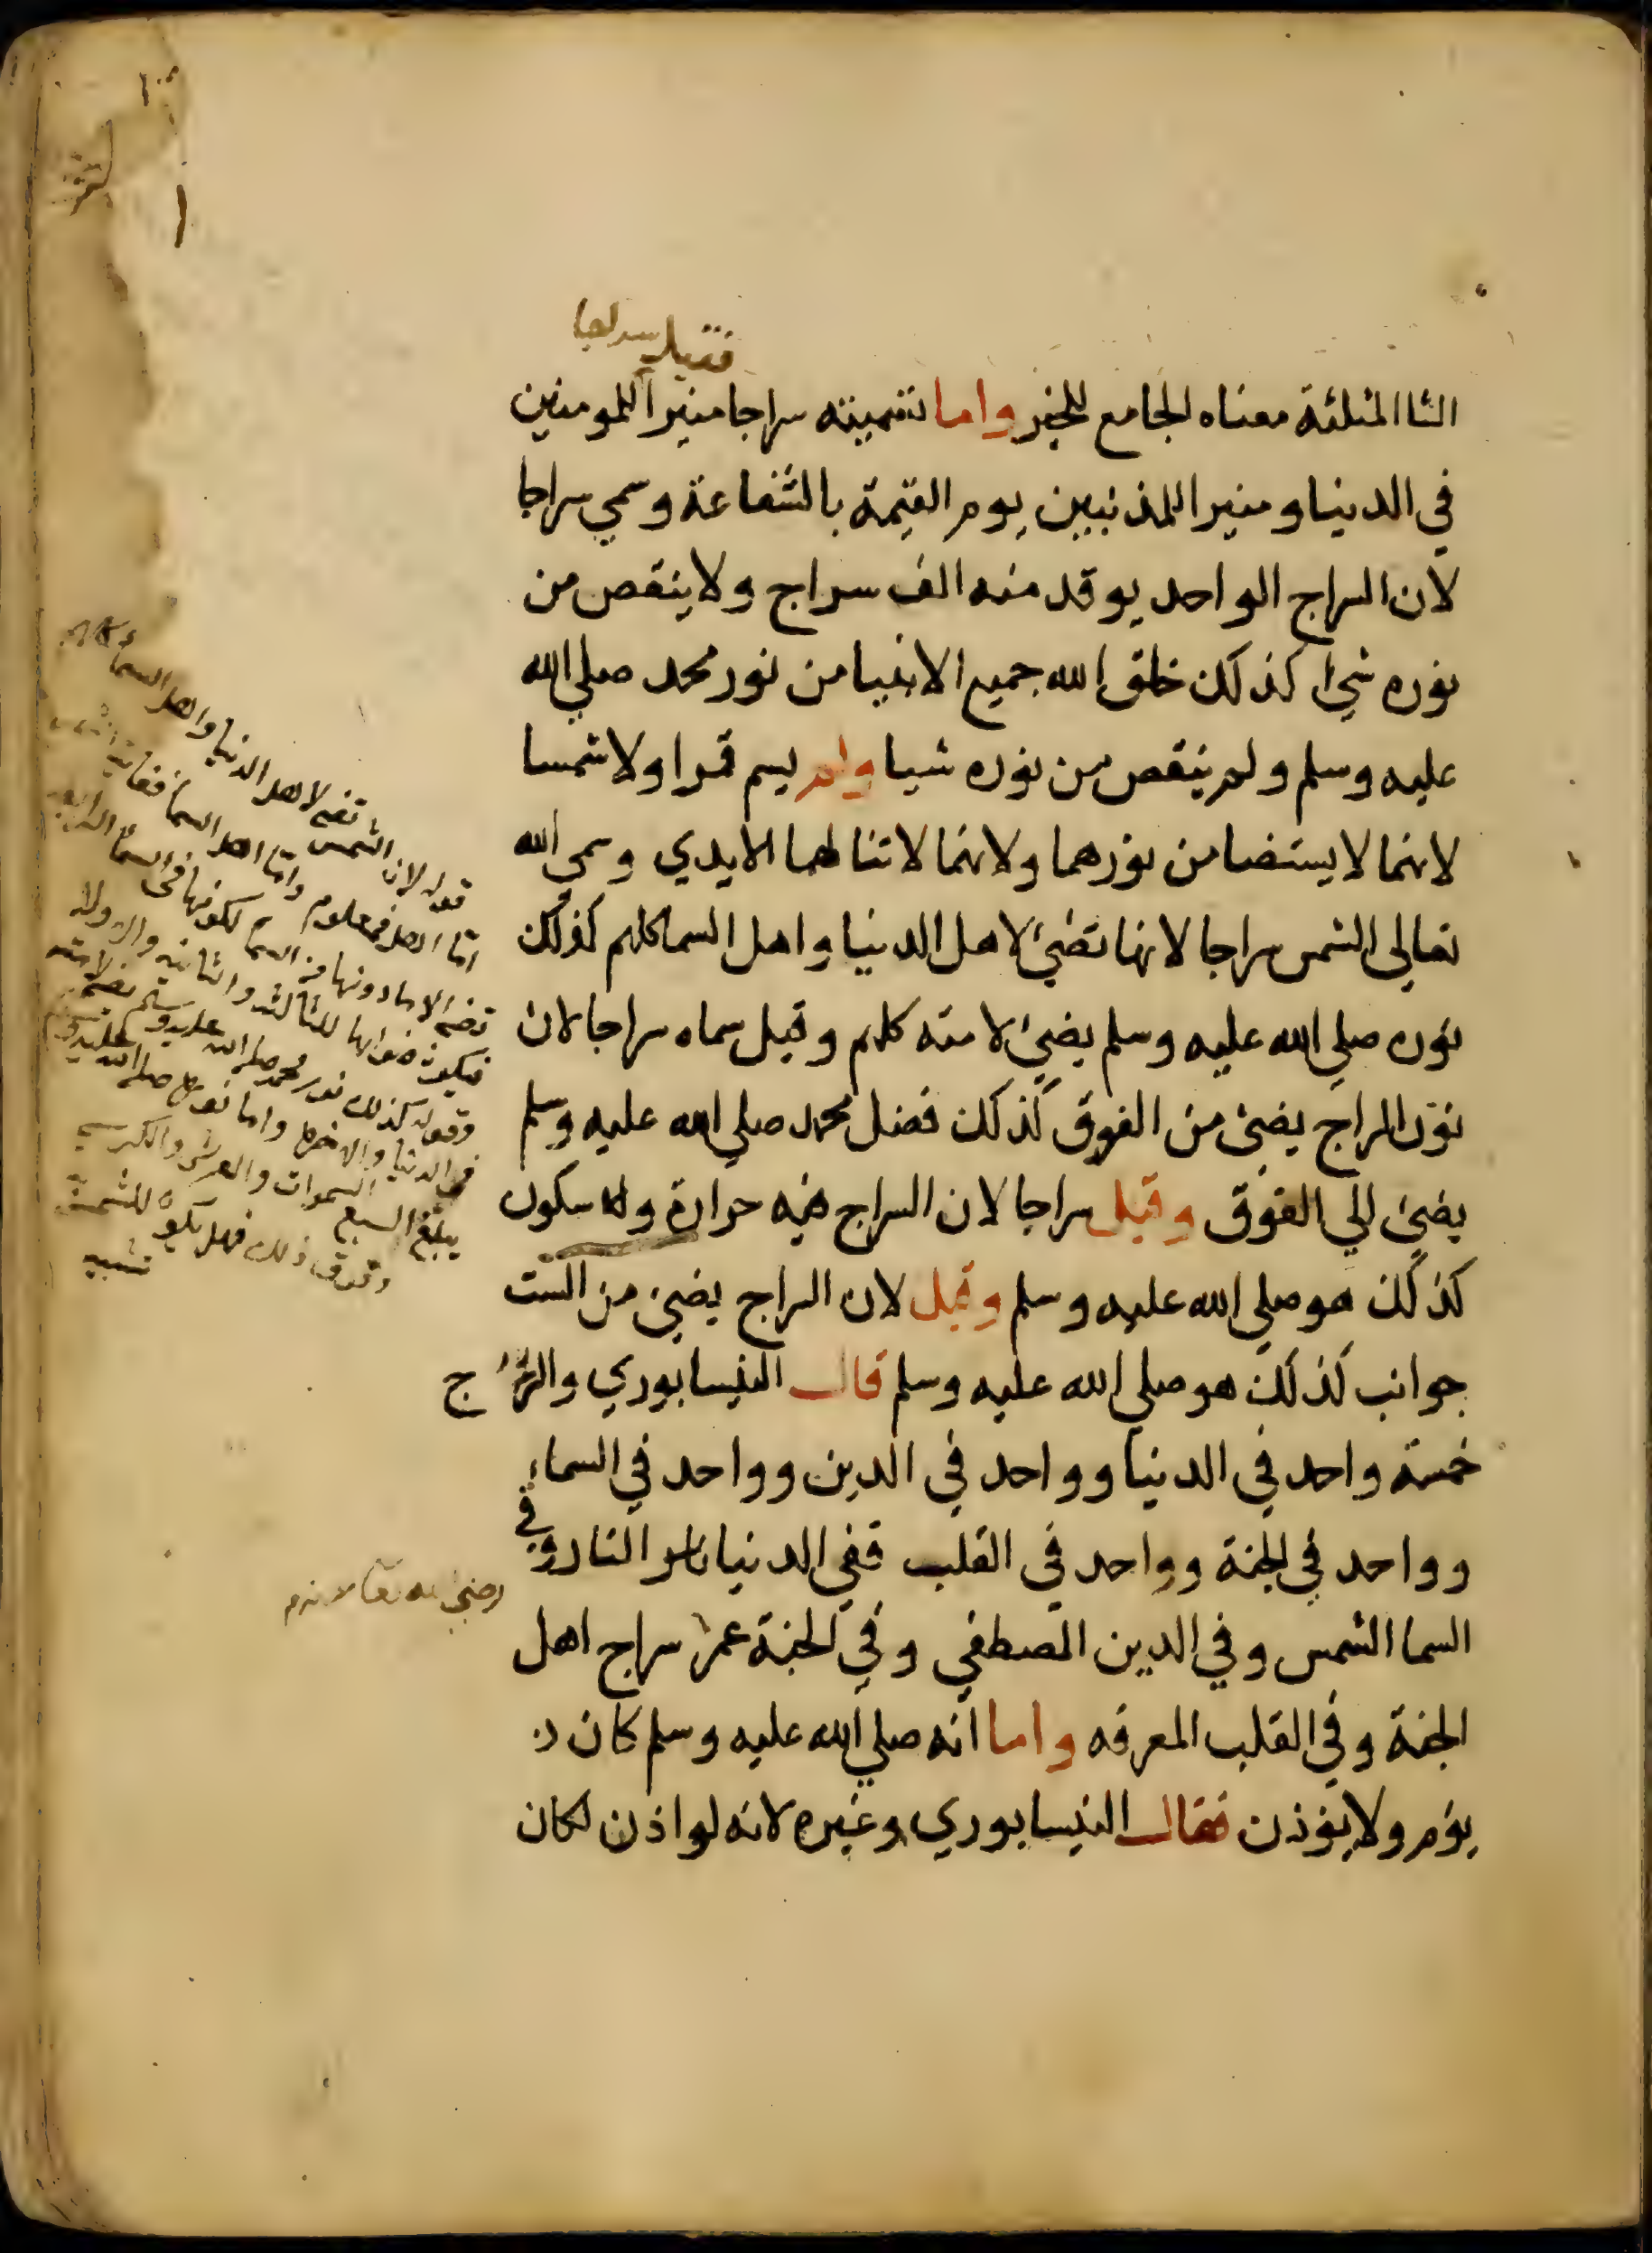 فقيل سراجا
الثا المثلثة معناه الجامع للخير واما تسميته سراجا منيرا للمومنين
في الدنيا ومنيرا للمذنبين يوم القيمة بالشفاعة وسمي سراجا
لان السراج الواحد يوقد منه الف سراج ولا ينقص من
نوره شئ كذلك خلق الله جميع الانبيا من نور محمد صلي الله
عليه وسلم ولم ينقص من نوره شيا ولم يسم قمرا ولا شمسا
لانهما لا يستضا من نورهما ولانهما لا تنالهما الايدي وسمي الله
تعالي الشمس سراجا لانها تضئ لاهل الدنيا واهل السما كلهم كذلك
نوره صلي الله عليه وسلم يضئ لامته كلهم وقيل سماه سراجا لان
نور السراج يضئ من الفوق كذلك فضل محمد صلي الله عليه وسلم
يضئ الي الفوق وقيل سراجا لان السراج فيه حرارة ولا سكون
كذلك هو صلي الله عليه وسلم وقيل لان السراج يضئ من الست
جوانب كذلك هو صلي الله عليه وسلم قال النيسابوري والسرج
خمسة واحد في الدنيا وواحد في الدين وواحد في السماء
وواحد في الجنة وواحد في القلب ففي الدنيا النار وفي
السما الشمس وفي الدين المصطفي وفي الجنة عمر سراج اهل
الجنة وفي القلب المعرفه واما انه صلي الله عليه وسلم كان
يؤم ولا يؤذن فقال النيسابوري وغيره لانه لو اذن لكان
قوله لان الشمس تضئ لاهل الدنيا واهل السماء
اما اهل فمعلوم واما اهل السما
لكونها في السما الرابعة
فيكون ضوءها للثالثة والثانية والاولى
وقوله كذلك نور محمد صلى الله عليه وسلم يضئ لامته
في الدنيا والاخرة واما نوره صلى الله عليه وسلم
يبلغ السبع السموات والعرش والكرسي
وفوق ذلك فهل يكون للشمس
تشبيه
رضي الله تعا